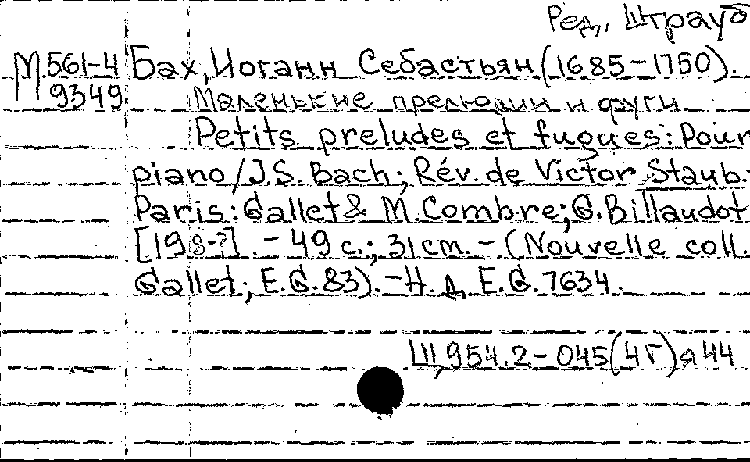 Ред., Штрауб
М 561-4 Бах, Иоганн Себастьян (1685-1750).
9349 Маленькие прелюдии и фуги
Petits preludes et fugues: Pour
piano/J.S. Bach; Rév. de Victor Staub.-
Paris: Gallet & M. Combre; G. Billaudot
[198-?]. - 49 с.; 31 cm. - (Nouvelle coll.
Gallet; E.G. 83). -Н. д. E.G. 7634.
Щ954.2-045(4Г)я44